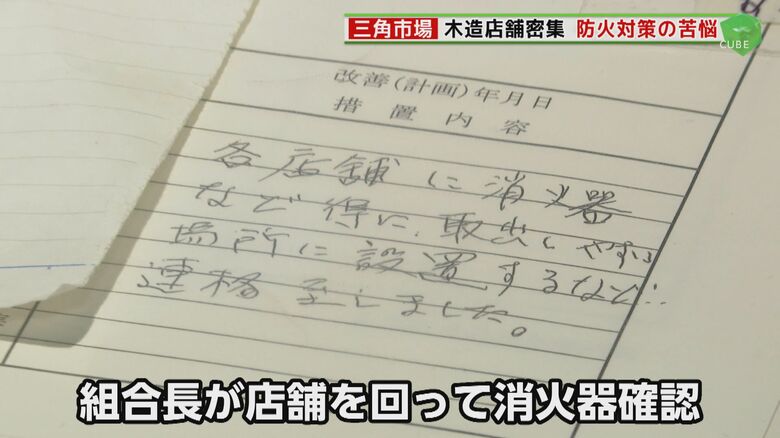 三角市場 木造店舗密集 防火対策の苦悩
CUBE
改善(計画)年月日
措置内容
各店舗に消火器
など得に、取出しやすい
場所に設置するなど…
連格至しました。
組合長が店舗を回って消火器確認